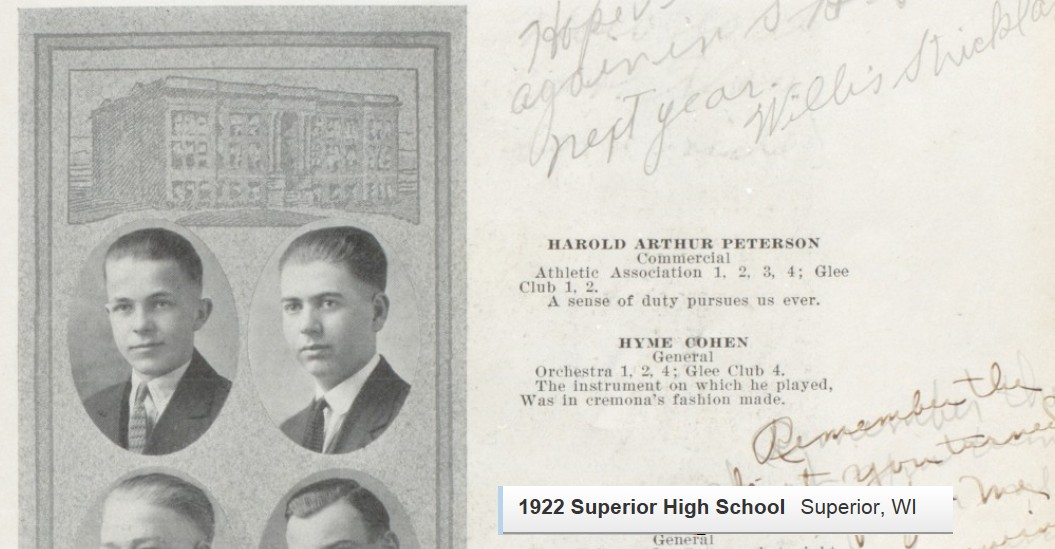 Hope
again in S H
next year.
Willis Strickla
HAROLD ARTHUR PETERSON
Commercial
Athletic Association 1, 2, 3, 4; Glee
Club 1, 2.
A sense of duty pursues us ever.
HYME COHEN
General
Orchestra 1, 2, 4; Glee Club 4.
The instrument on which he played,
Was in cremona's fashion made.
Remember the
you turned
me
1922 Superior High School Superior, WI
General